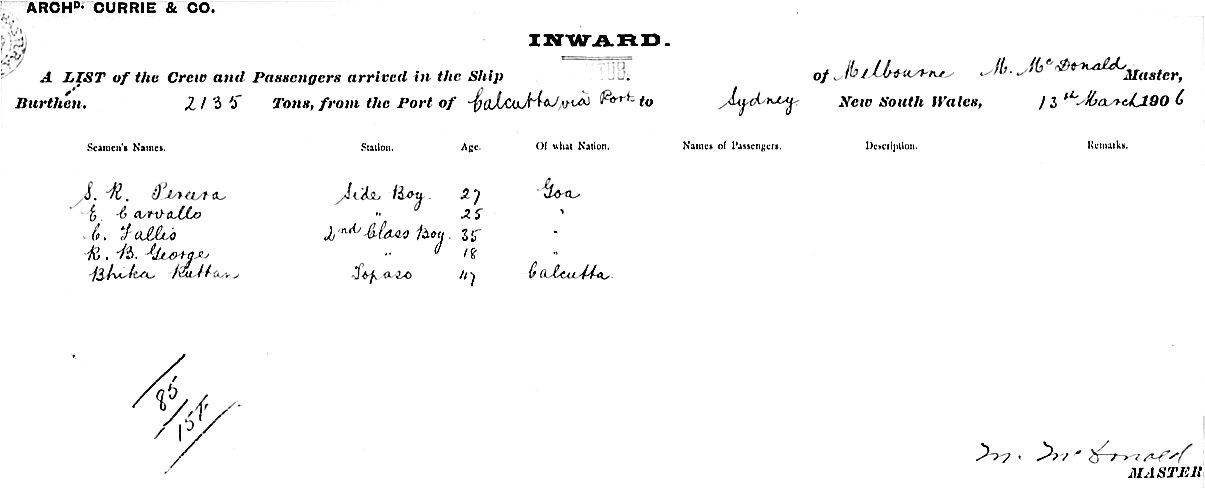 ARCHD. CURRIE & CO.
INWARD.
A LIST of the Crew and Passengers arrived in the Ship of Melbourne M. McDonald Master,
Burthen. 2135 Tons, from the Port of Calcutta via Port to Sydney New South Wales, 13th March 1906
Seamen's Names. Station. Age. Of what Nation. Names of Passengers. Description. Remarks.
S. R. Pereira Side Boy. 27 Goa
E. Carvallo " 25 "
C. Fallis 2nd Class Boy. 35 "
R. B. George " 18 "
Bhika Ruttan Topaso 47 Calcutta.
85
M. McDonald
MASTER